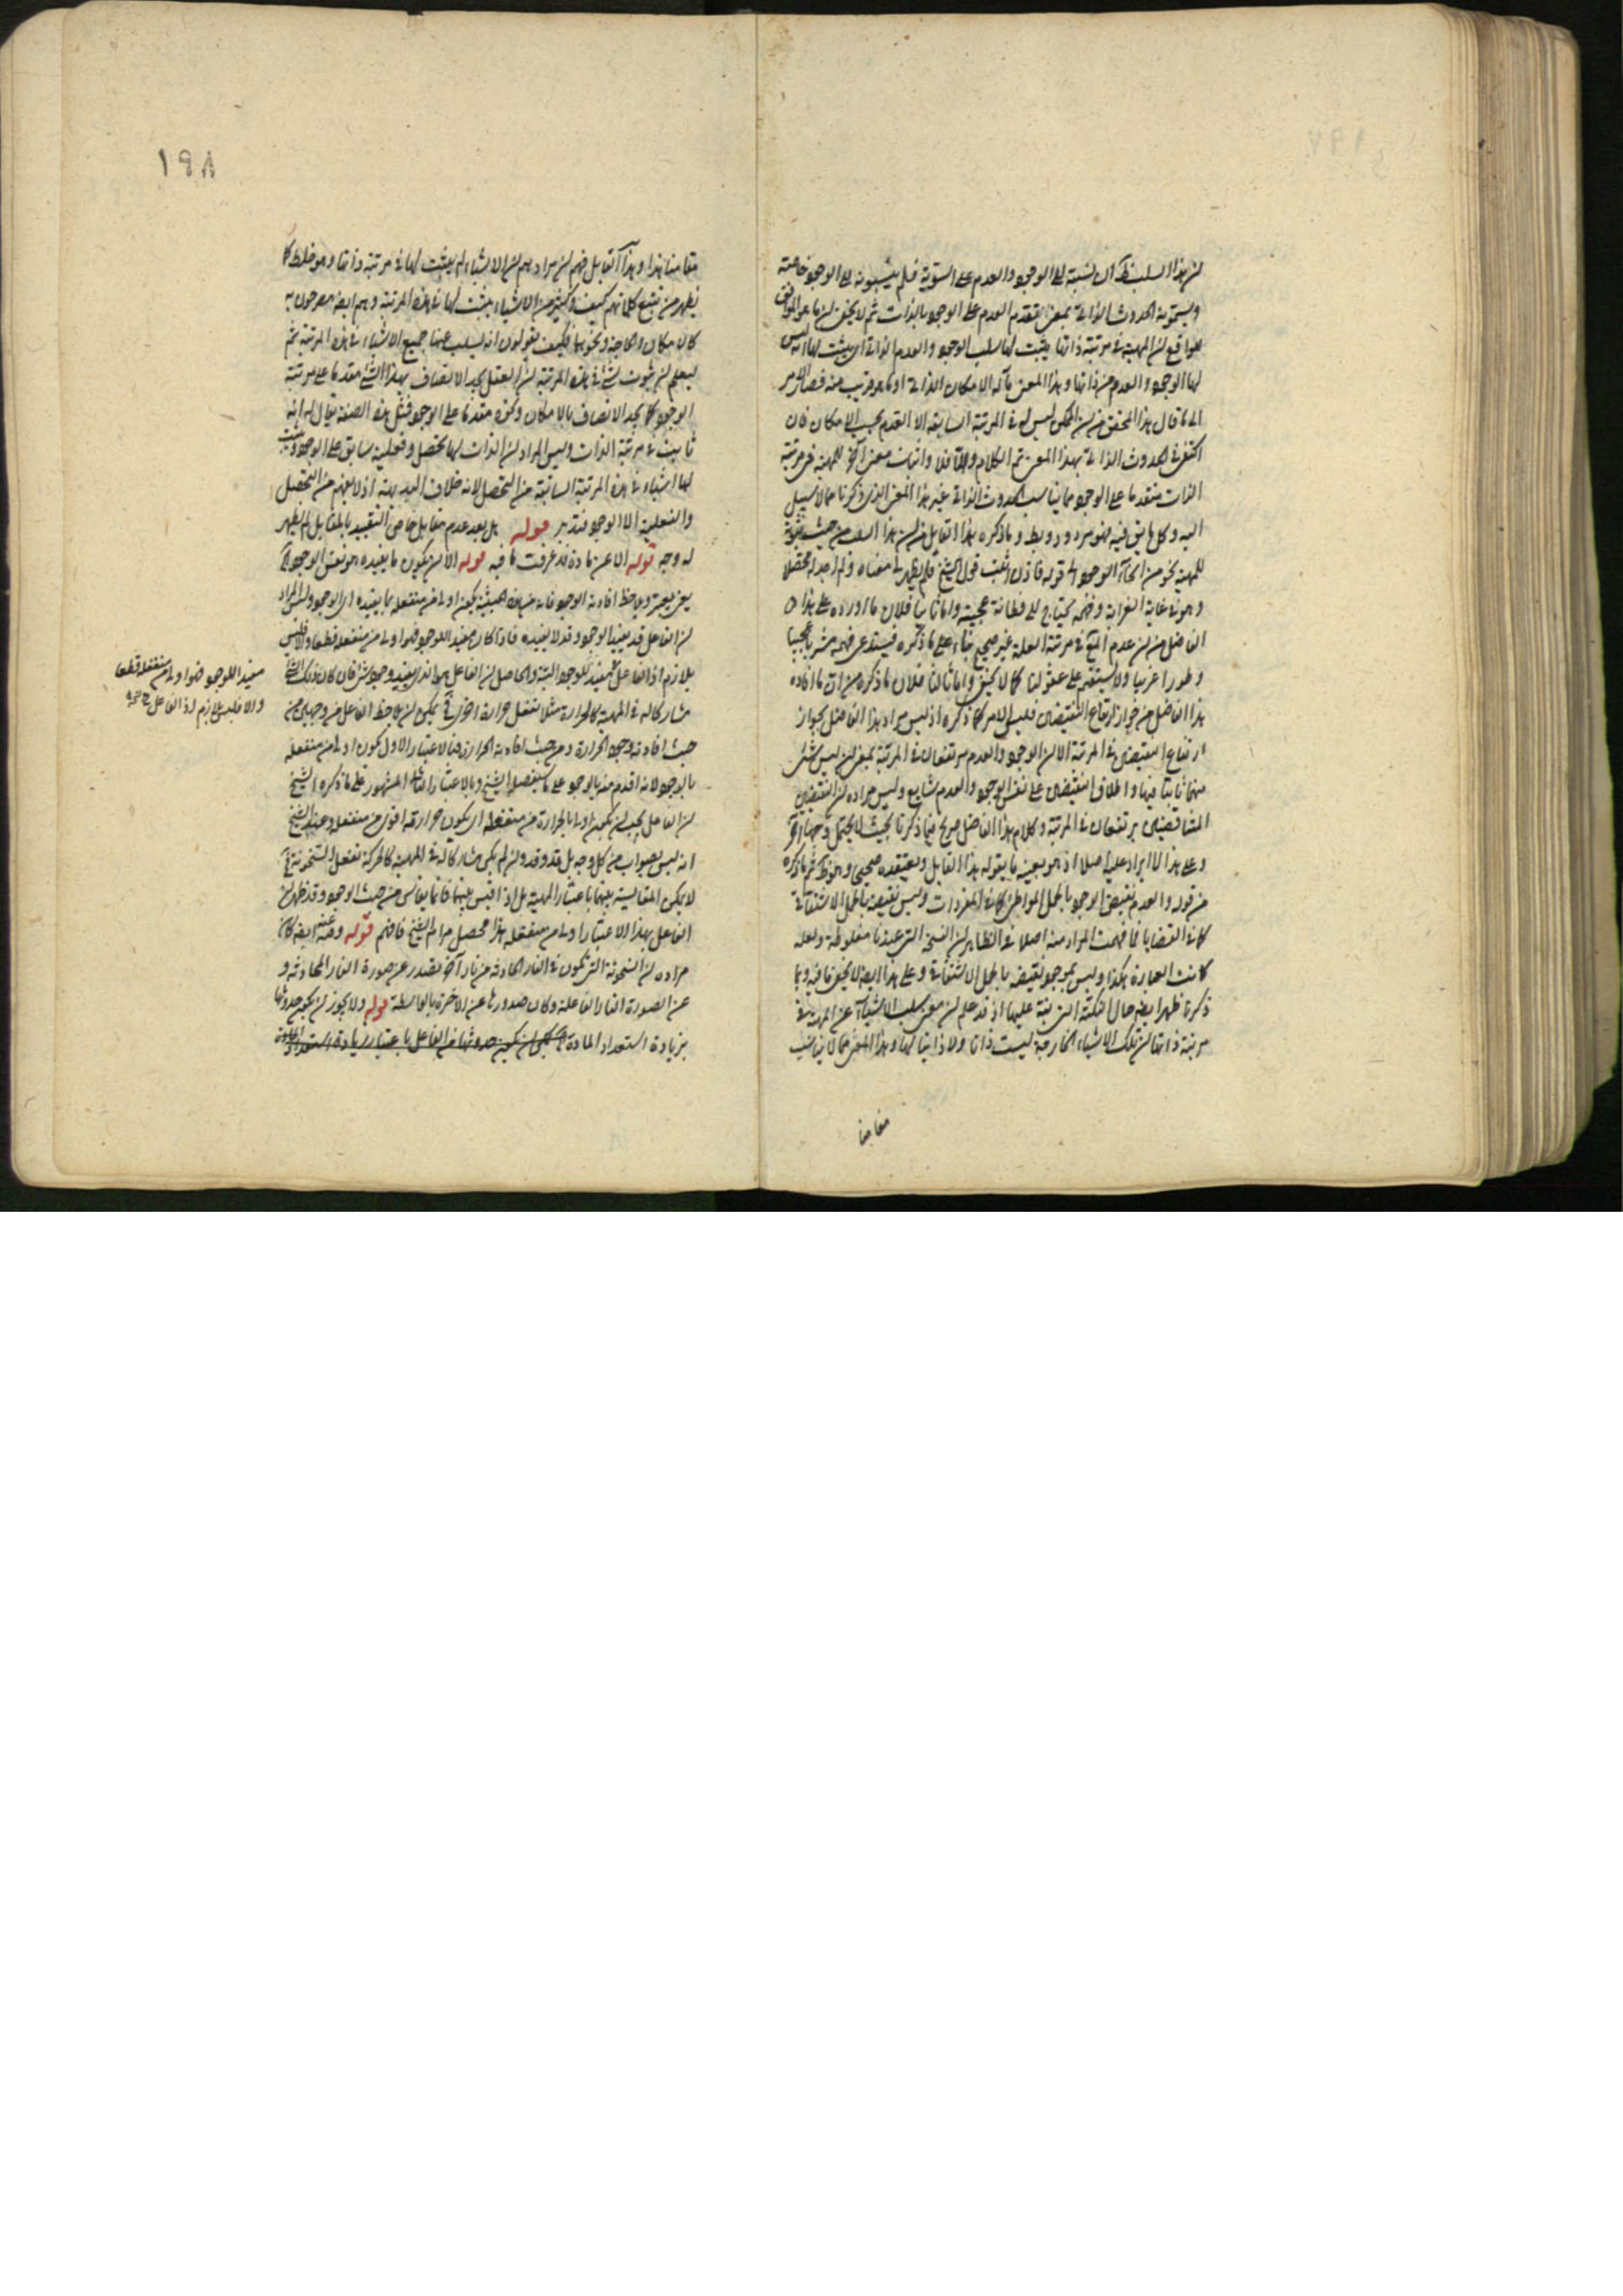 لان هذا السلب نسبة الى الوجود والعدم على السوية فلم ينسبونه الى الوجود خاصة
ويسمونه الحدوث الذاتي بمعنى تقدم العدم على الوجود بالذات ثم لا يخفى ان ما هو الموافق
للواقع ان المهية في مرتبة ذاتها يثبت لها سلب الوجود والعدم الذاتي اي يثبت لها انه ليس
لها الوجود والعدم من ذاتها وهذا المعنى مآله الامكان الذاتي او ما هو قريب منه فصار الامر
الى ما قال هذا المحقق من ان الممكن ليس له في المرتبة السابقة الا العدم بحسب الامكان فان
اكتفى في الحدوث الذاتي بهذا المعنى تم الكلام والا فلا واثبات معنى آخر للمهية في مرتبة
الذات متقدما على الوجود مما يناسب الحدوث الذاتي غير هذا المعنى الذي ذكرنا مما لا سبيل
اليه وكل ما يق فيه فهو مردود وما ذكره هذا القايل من ان هذا السلب من حيث ثبوته
للمهية نحو من انحاء الوجود الى قوله فاذن اثبت قول الشيخ فلم يظهر لي معناه ولم اجد له محصلا
وهو في غاية الغرابة وفهمه يحتاج الى فطانة عجيبة واما ثانيا فلان ما اورده على هذا
الفاضل من ان عدم في مرتبة العلة غير صحيح بناء على ما ذكره فيستدعى فهمه مشربا عجيبا
وطورا غريبا ولا يستقيم على عقولنا كما لا يخفى واما ثالثا فلان ما ذكره من ان ما افاده
هذا الفاضل من جواز ارتفاع النقيضين فليس الامر كما ذكره اذ ليس مراد هذا الفاضل بجواز
ارتفاع النقيضين في المرتبة الا ان الوجود والعدم مرتفعان في المرتبة بمعنى ان ليس شئ
منهما ثابتا فيها واطلاق النقيضين على نفس الوجود والعدم شايع وليس مراده ان النقيضين
المتناقضين يرتفعان في المرتبة وكلام هذا الفاضل صريح فيما ذكرنا بحيث لا يحتمل وجها آخر
وعلى هذا لا ايراد عليه اصلا اذ هو بعينه ما يقوله هذا القايل ويعتقده صحيحا ثم ما ذكره
من قوله والعدم نقيض الوجود بالحمل المواطئ كما في المفردات وليس نقيضه بالحمل الاشتقاقي
كما في القضايا فما فهمت المراد منه اصلا والظاهر ان النسخة التي عندنا مغلوطة ولعله
كانت العبارة هكذا وليس بموجود نقيضه بالحمل الاشتقاقي وعلى هذا ايضا لا يخفى ما فيه وبما
ذكرنا ظهر ايضا حال النكتة التي نبه عليها اذ قد علم ان معنى سلب الاشياء عن المهية في
مرتبة ذاتها ان تلك الاشياء الخارجة ليست ذاتا ولا ذاتيا لها وهذا المعنى مما لا يناسب
مقامنا
١٩٨
مقامنا هذا وهذا القايل فهم ان مرادهم ان الاشياء لم يثبت لها في مرتبة ذاتها وهو غلط كما
يظهر من تتبع كلماتهم كيف وكثير من الاشياء يثبت لها في هذه المرتبة وهم ايضا مصرحون به
كالامكان والحاجة ونحوهما فكيف يقولون انه ليسلب عنها جميع الاشياء في هذه المرتبة ثم
ليعلم ان ثبوت شئ في هذه المرتبة ان العقل يجد الاتصاف بهذا الشئ مقدما على مرتبة
الوجود كما يجد الاتصاف بالامكان ونحوه مقدما على الوجود فمثل هذه الصفة يقال له انه
ثابت في مرتبة الذات وليس المراد ان الذات لها تحصل وفعلية سابق على الوجود ويثبت
لها اشياء في هذه المرتبة السابقة من التحصل لانه خلاف البديهة اذ لا يفهم من التحصل
والفعلية الا الوجود فتدبر قوله بل بعد عدم مقابل خاص التقييد بالمقابل لم يظهر
له وجه قوله الا عن مادة قد عرفت ما فيه قوله الا ان يكون ما يفيده هو نفس الوجود
يعنى يعتبر ويلاحظ افادته الوجود فانه من هذه الحيثية يكون اولى من منفعله بما يفيده اى الوجود وليس المراد
ان الفاعل قد يفيد الوجود وقد لا يفيده فاذا كان مفيدا للوجود فهو اولى من منفعله قطعا والا فليس
بلازم اذ الفاعل مفيد للوجود البتة والحاصل ان الفاعل هو الذى يفيد وجود شئ فان كان ذلك الشئ
مشاركا له في المهية كالحرارة مثلا تفعل حرارة اخرى فح يمكن ان يلاحظ الفاعل من وجهين من
حيث افادته وجود الحرارة ومن حيث افادته الحرارة فبالاعتبار الاول يكون اولى من منفعله
بالوجود لانه اقدم منه بالوجود على ما سيفصله الشيخ وبالاعتبار الثانى المشهور على ما ذكره الشيخ
ان الفاعل يجب ان يكون اولى بالحرارة من منفعله اى يكون حرارته اقوى من منفعله وعند الشيخ
انه ليس بصواب من كل وجه بل قد وقد وان لم يكن مشاركا له في المهية كالحركة تفعل السخونة فح
لا يمكن المقايسة بينهما باعتبار المهية بل اذا قيس بينهما فانما يقاس من حيث الوجود وقد ظهر ان
الفاعل بهذا الاعتبار اولى من منفعله هذا محصل مرام الشيخ فافهم قوله وعنه ايضا كان
مراده ان السخونة التى تكون في النار الحادثة من نار آخر يصدر عن صورة النار الحادثة و
عن الصورة النار الفاعلة وكان صدورها عن الاخرة بالواسطة قوله ولا يجوز ان يكون حدوثها
بزيادة استعداد المادة يمكن ان يكون حدوثها من الفاعل باعتبار زيادة استعداد المادة
مفيدا للوجود فهو اولى من منفعله قطعا
والا فليس بلازم اذ الفاعل